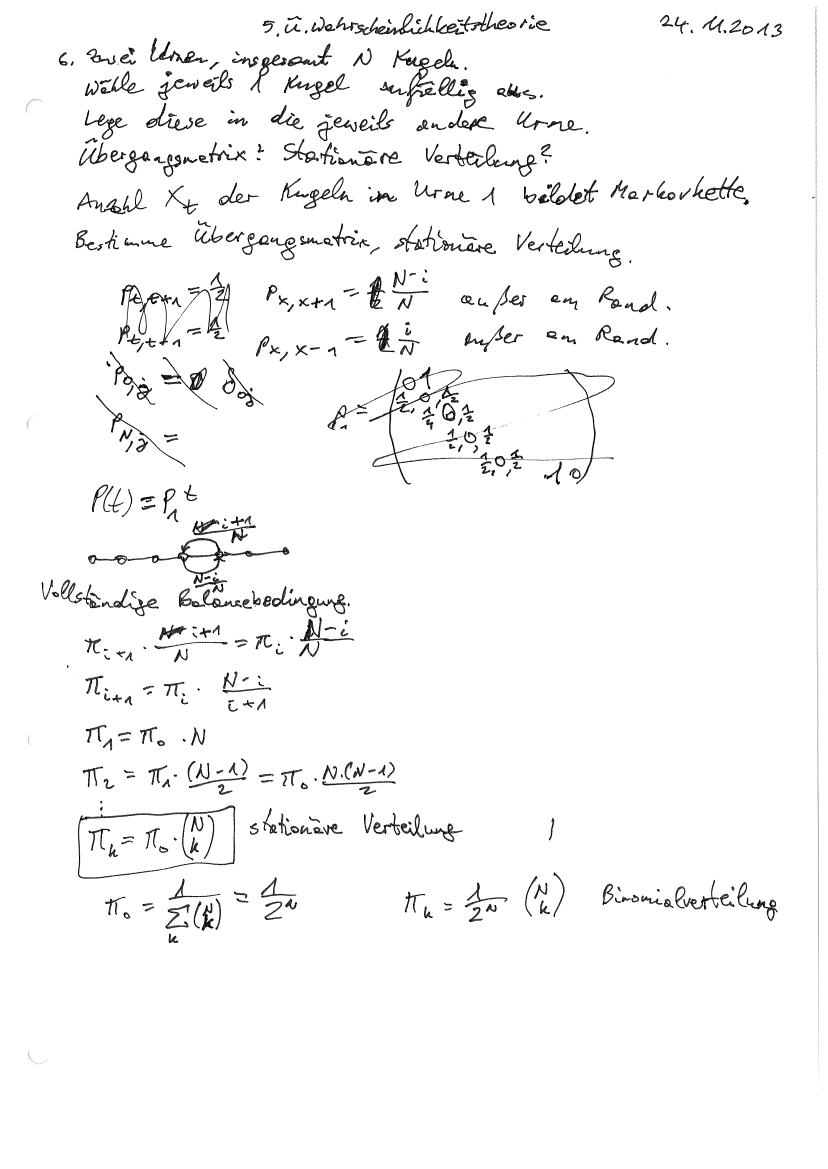 5. Ü. Wahrscheinlichkeitstheorie 24.11.2013
6. Zwei Urnen, insgesamt N Kugeln.
Wähle jeweils 1 Kugel zufällig aus.
Lege diese in die jeweils andere Urne.
Übergangsmatrix? Stationäre Verteilung?
Anzahl X_t der Kugeln in Urne 1 bildet Markovkette.
Bestimme Übergangsmatrix, stationäre Verteilung.
P_{t,t+1} = 1/2 P_{x,x+1} = (N-i)/N außer am Rand.
P_{t,t+1} = 1/2 P_{x,x-1} = i/N außer am Rand.
P_{0,j} = δ_{0j}
P_{N,j} =
P_1 = ( 0 1
1/2, 0, 1/2
1/2 0, 1/2
1/2, 0, 1/2
1/2, 0, 1/2 1 0 )
P(t) = P_1^t
(i+1)/N
(N-i)/N
Vollständige Balancebedingung.
π_{i+1} · (i+1)/N = π_i · (N-i)/N
π_{i+1} = π_i · (N-i)/(i+1)
π_1 = π_0 · N
π_2 = π_1 · (N-1)/2 = π_0 · N·(N-1)/2
⋮
π_k = π_0 · (N k) stationäre Verteilung
π_0 = 1/(∑_k (N k)) = 1/2^N π_k = 1/2^N (N k) Binomialverteilung